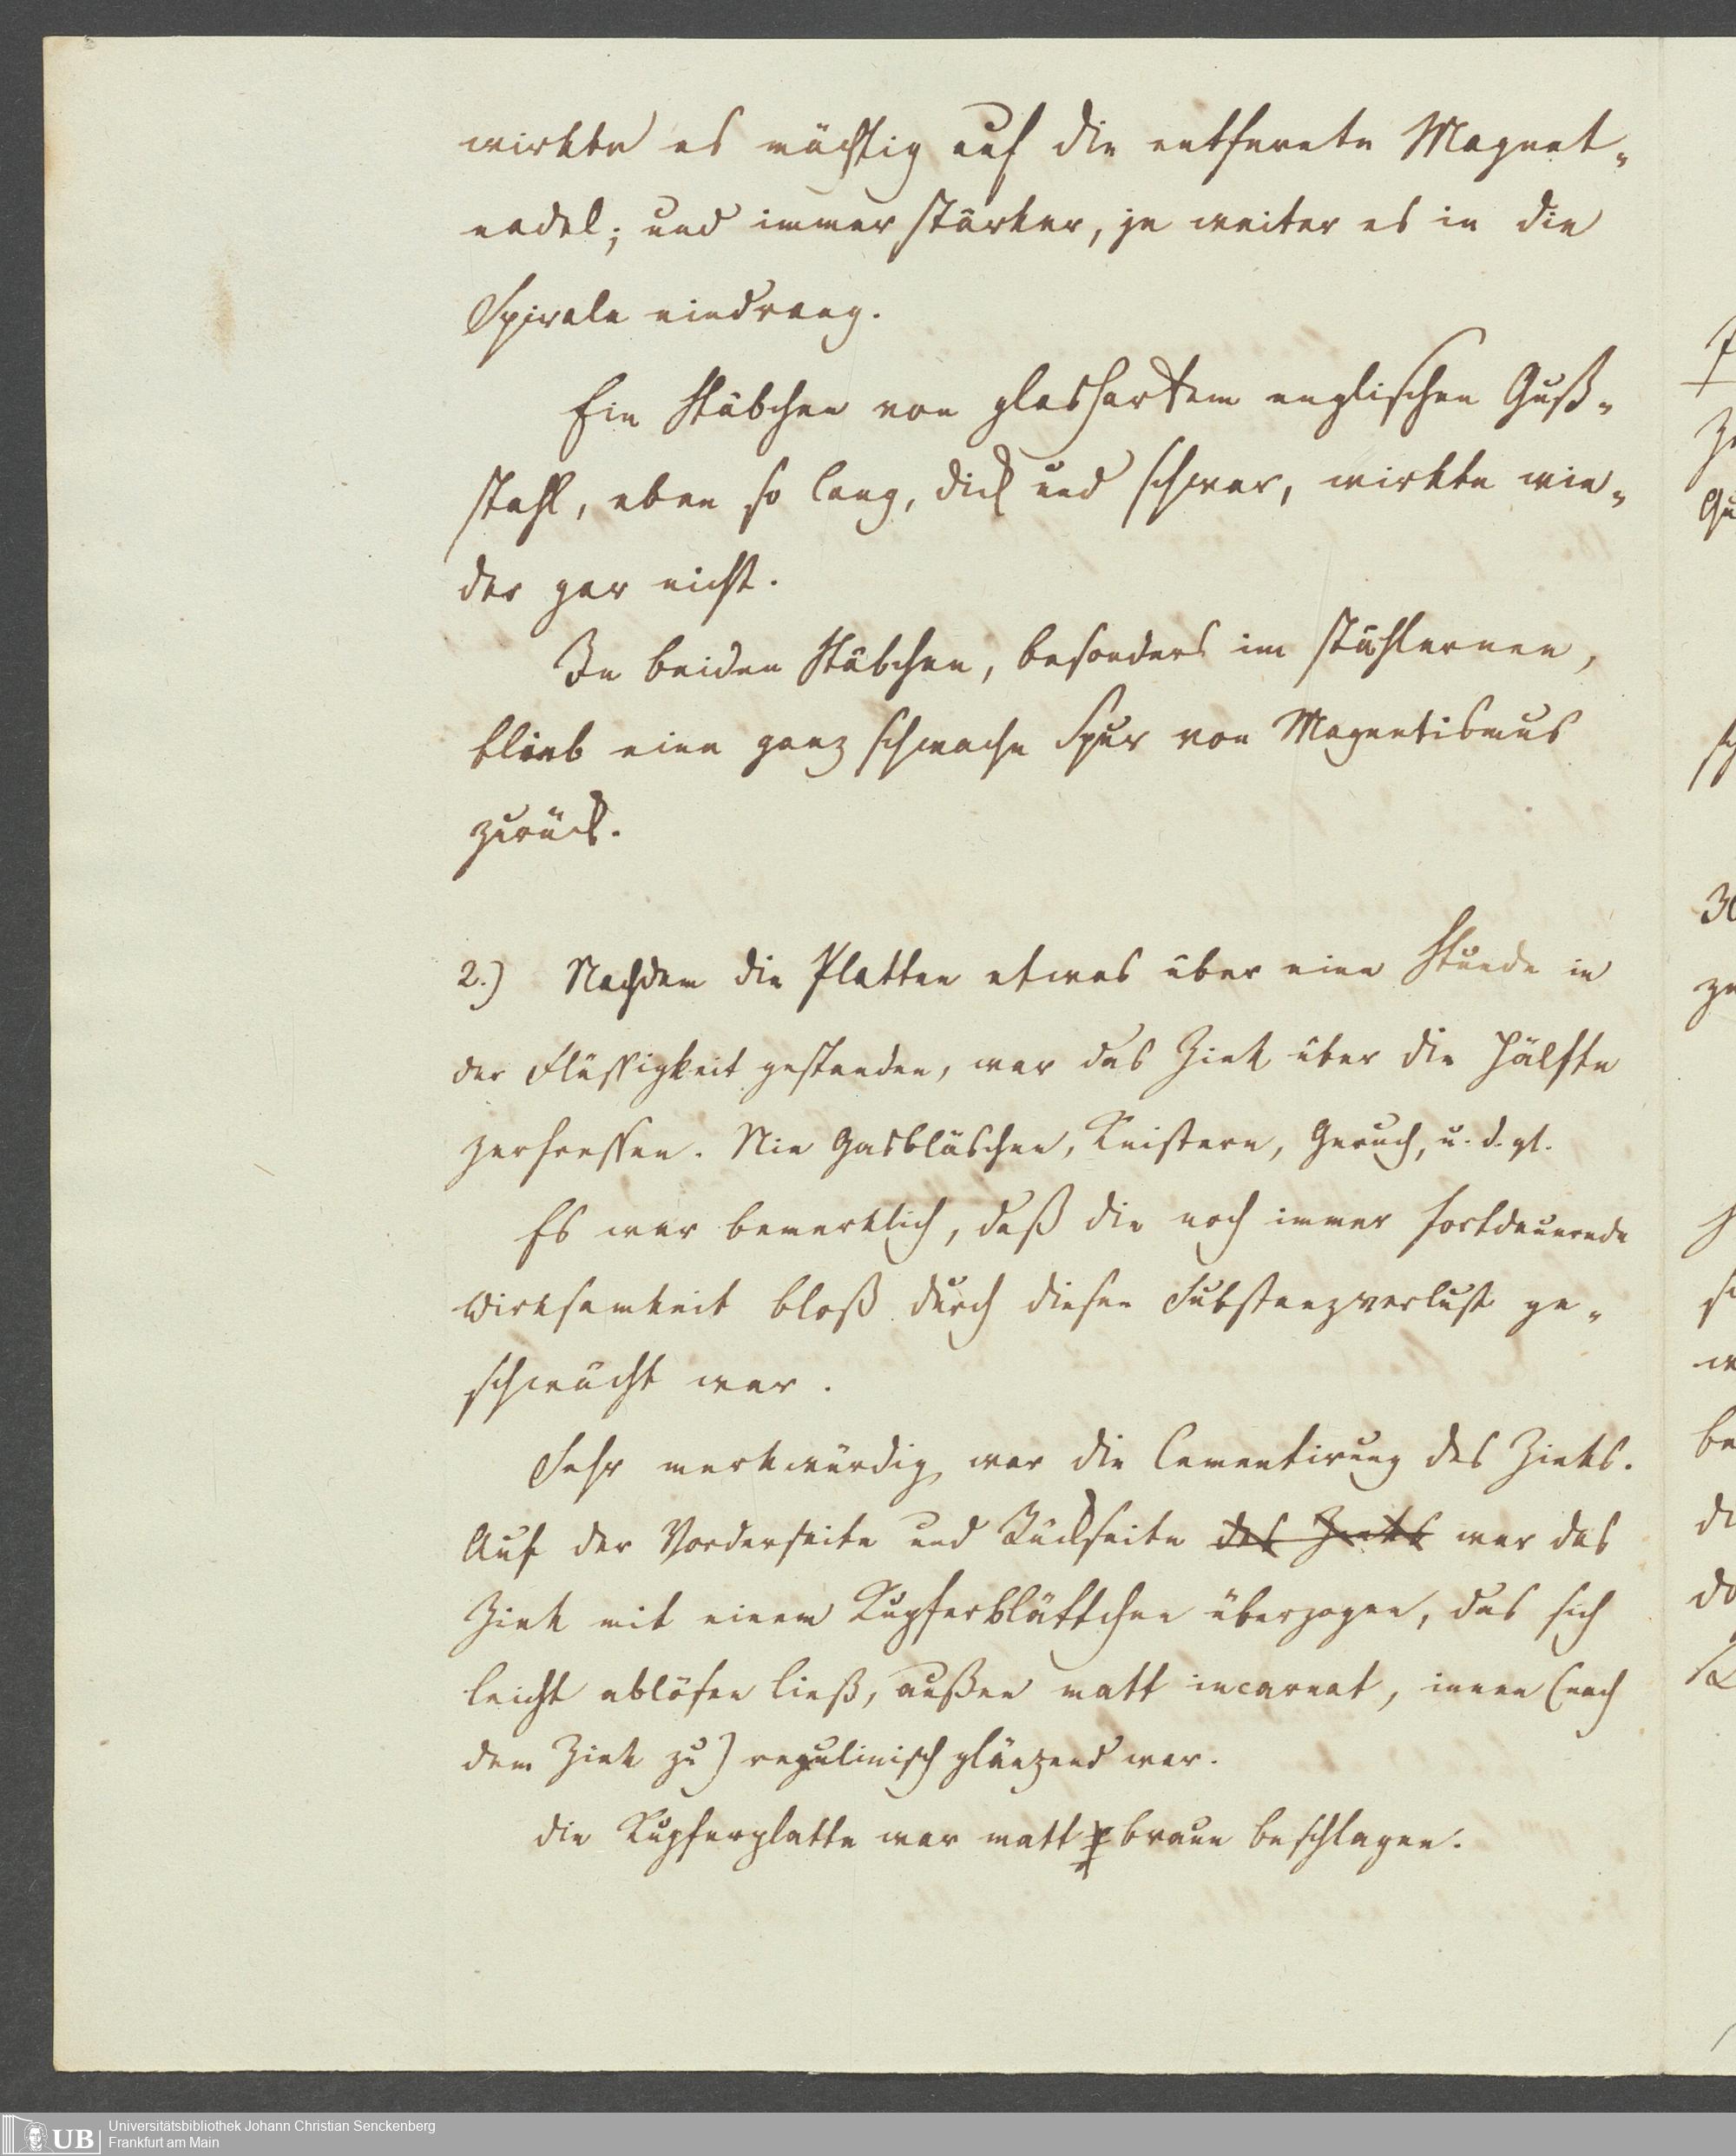 wirkte es mächtig auf die entfernte Magnet-
nadel; und immer stärker, je weiter es in die
Spirale eindrang.
Ein Stäbchen von glashartem englischen Guß-
stahl, eben so lang, dick und schwer, wirkte wie-
der gar nicht.
In beiden Stäbchen, besonders im stählernen,
blieb eine ganz schwache Spur von Magnetismus
zurück.
2.) Nachdem die Platten etwas über eine Stunde in
der Flüssigkeit gestanden, war das Zink über die Hälfte
zerfressen. Nie Gasbläschen, Knistern, Geruch, u. d. gl.
Es war bemerklich, daß die noch immer fortdauernde
Wirksamkeit bloß durch diesen Substanzverlust ge-
schwächt war.
Sehr merkwürdig war die Cementirung des Zinks.
Auf der Vorderseite und Rückseite des Zinks war das
Zink mit einem Kupferblättchen überzogen, das sich
leicht ablösen ließ, außen matt incarnat, innen (nach
dem Zink zu) regulinisch glänzend war.
die Kupferplatte war matt braun beschlagen.
UB Universitätsbibliothek Johann Christian Senckenberg
Frankfurt am Main